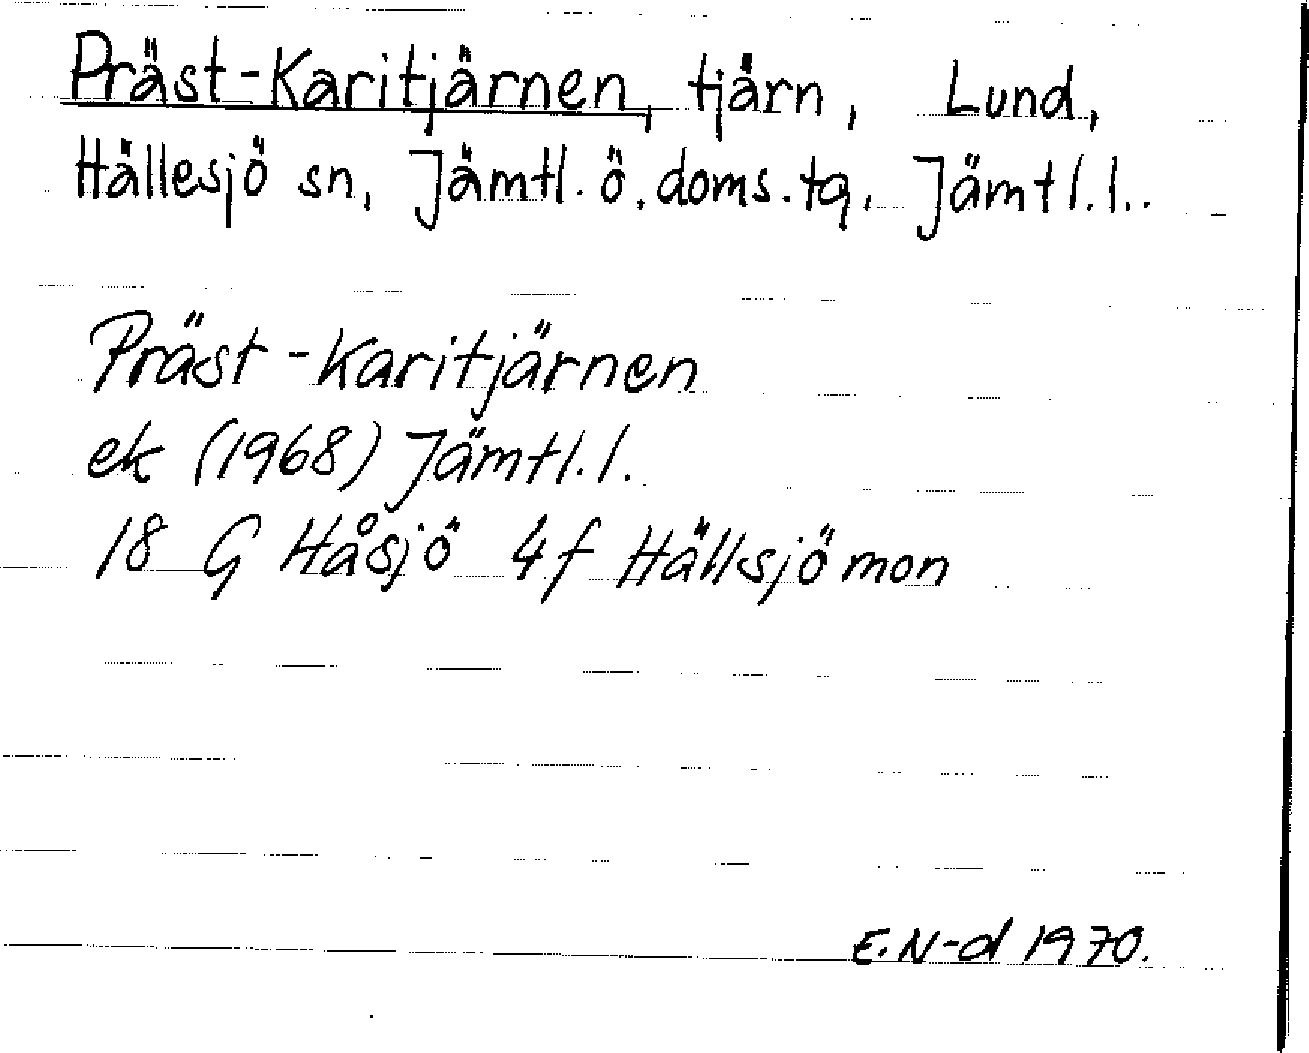 Präst-Karitjärnen, tjärn, Lund,
Hällesjö sn, Jämtl. ö. doms. tg, Jämtl. l..
Präst-Karitjärnen
ek (1968) Jämtl. l.
18 G Håsjö 4 f Hällsjömon
E. N-d 1970.